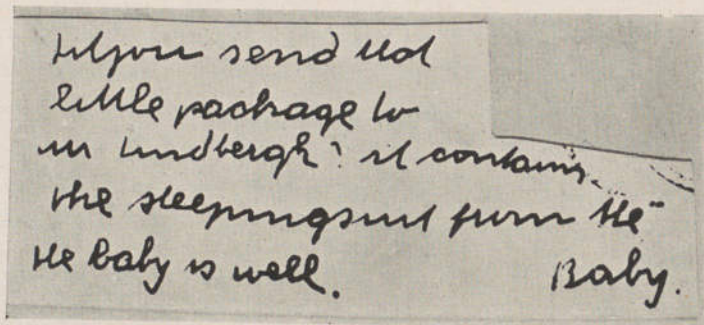 did you send that
little package to
mr Lindbergh? it contains
the sleepingsuit from the
the baby is well. Baby.